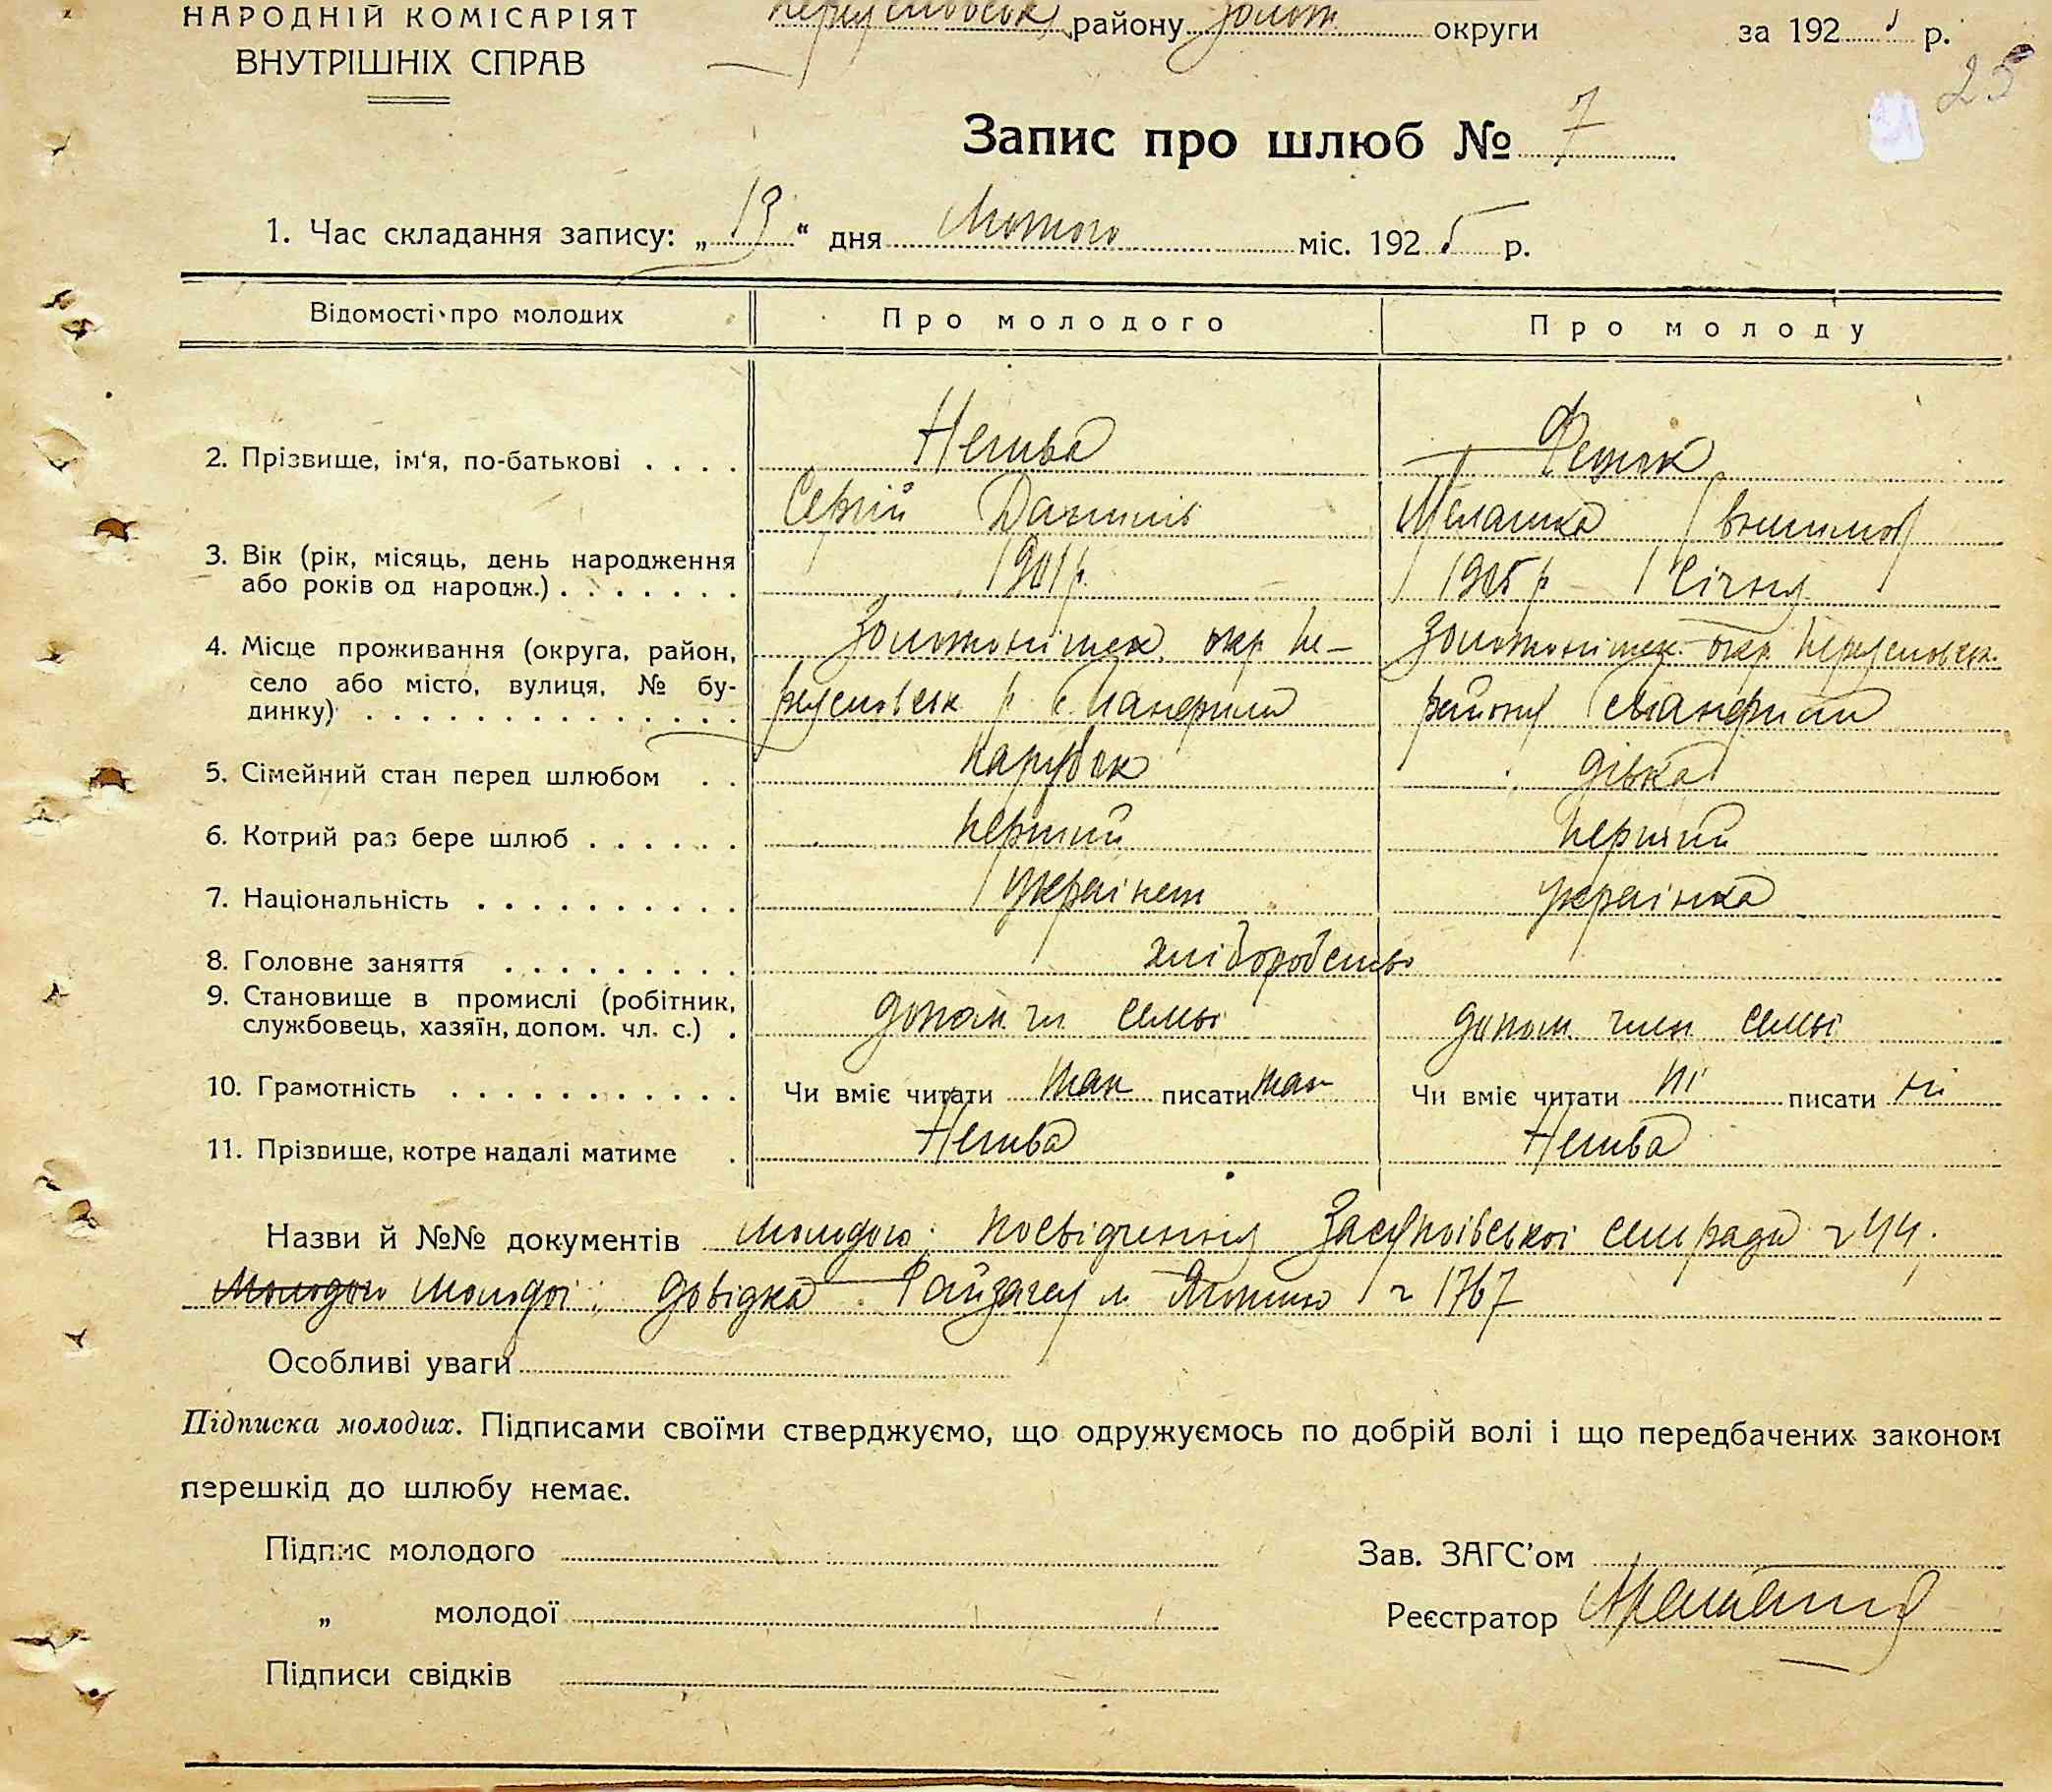 НАРОДНІЙ КОМІСАРІЯТ
ВНУТРІШНІХ СПРАВ
району Золот. округи за 192 5 р.
25
Запис про шлюб № 7
1. Час складання запису: „ 13 “ дня Лютого міс. 192 5 р.
Відомості про молодих Про молодого Про молоду
2. Прізвище, ім'я, по-батькові
Сергій Данилів Мелашка
3. Вік (рік, місяць, день народження або років од народж.) 1901 р. 1905 р – 1 Січня
4. Місце проживання (округа, район, Золотоніськ. окр. Пе- Золотоніськ. окр. Переяславськ.
село або місто, вулиця, № бу- реяславськ р. с. району
динку)
5. Сімейний стан перед шлюбом парубок дівка
6. Котрий раз бере шлюб перший перший
7. Національність українец українка
8. Головне заняття хліборобство
9. Становище в промислі (робітник, службовець, хазяїн, допом. чл. с.) допом. чл семьї допом. член семьї
10. Грамотність Чи вміє читати так писати так Чи вміє читати ні писати ні
11. Прізвище, котре надалі матиме
Назви й №№ документів Молодого: посвідчення сельради 44.
Молодого Молодої: довідка 1767
Особливі уваги
Підписка молодих. Підписами своїми стверджуємо, що одружуємось по добрій волі і що передбачених законом
перешкід до шлюбу немає.
Підпис молодого Зав. ЗАГС'ом
„ молодої Реєстратор
Підписи свідків